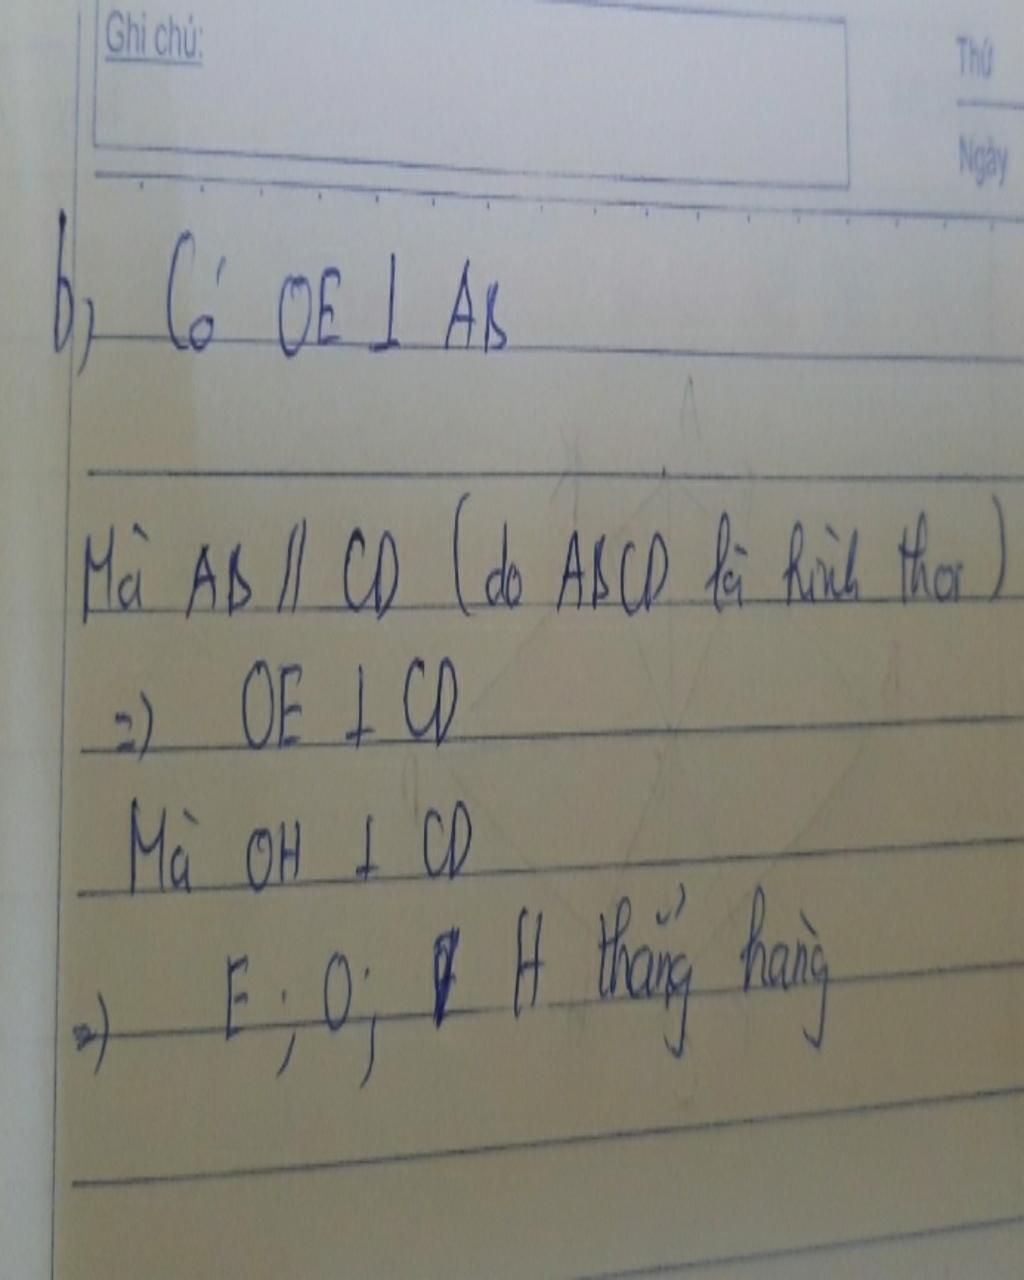 Ghi chú:
Thứ
Ngày
b, Có OE ⊥ AB
Mà AB // CD (do ABCD là hình thoi)
=) OE ⊥ CD
Mà OH ⊥ CD
=) E ; O ; H thẳng hàng